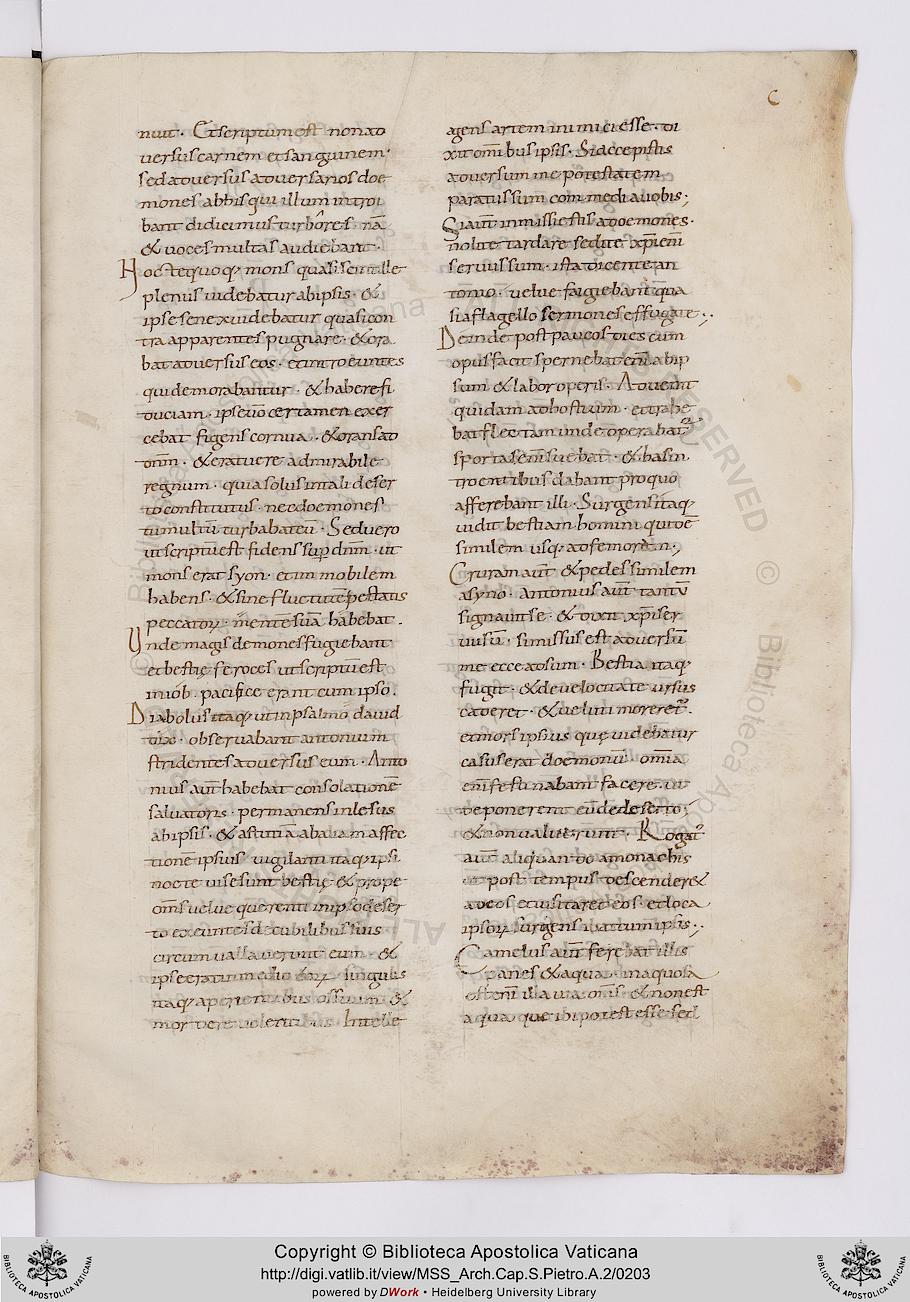 C
nuit. Et scriptum est non ad
uersus carnem et sanguinem.
sed aduersus aduersarios doe
mones abhis qui illum introi
bant didicimus turbores. nā
& uoces multas audiebant.
Hoc tequoq; mons quasi scintille
plenus uidebatur abipsis. &
ipse senex uidebatur quasi con
tra apparentes pugnare. & ora
bat aduersus eos. et introeuntes
qui demorabantur. & habere fi
duciam. ipse uō certamen exer
cebat figens cornua. & orans ad
dnm̄. & erat uere admirabile
regnum. quia solus in tali deser
to constitutus. nec doemones
tumultū turbabat eū. Sed uero
ut scriptū est fidens sup̄ dnm̄. ut
mons erat syon. et immobilem
habens. & sine fluctu tēpestatis
peccatoꝝ. mentē suā habebat.
Unde magis demones fugiebant
et bestię feroces ut scriptū est
in iob. pacifice erant cum ipso.
Diabolus itaq; ut in psalmo dauid
dix. obseruabant antonium
stridentes aduersus eum. Anto
nius aut̄ habebat consolationē
saluatoris. permanens inlesus
abipsis. & astutiā abauam affec
tionē ipsius uigilanti itaq; ipsi
nocte uise sunt bestię & prope
om̄s uelue querenti in ipso deser
to exeuntes de cubilibus suis
circumuallauerunt eum. &
ipse erat in medio eoꝝ. singulis
itaq; aperientibus os suum &
mordere uolentibus. Intelle
agens artem inimici esse. di
xit om̄ibus ipsis. Si accepistis
aduersum me potestatem
paratus sum commedi a uobis;
Si aut̄ inmissi estis a doemones.
nolite tardare sed ite xp̄i eni
seruus sum. ista dicente an
tonio. uelue faigiebant qua
si a flagello sermones effugate.,
Deinde post paucos dies cum
opus facit spernebat enī abip
sum & labor operis. Aduenit
quidam ad hostium. et trahe
bat flectam unde operabat̄
sportas enī suebat. & bas in
troentibus dabant pro quo
afferebant illi. Surgens itaq;
uidit bestiam homini quidē
similem usq; ad femore n.,
Crura aut̄ & pedes similem
asyno. antonius aut̄ tantū
signauit se. & dixit xp̄i ser
uus ū. si missus est aduersū
me ecce adsum. Bestia itaq;
fugit. & de uelocitate ursus
caderet. & ueluti moreret̄.
et mors ipsius quę uidebatur
casus erat doemonū. om̄ia
enī festinabant facere. ut
deponerent eū de deserto;
& non ualuerunt. Rogat̄
aut̄ aliquando a monachis
ut post tempus descender&
ad eos et uisitaret eos. et loca
ipsoꝝ surgens ibat cum ipsis.,
Camelus aut̄ ferebat illis
panes & aqua. inaquosa
est enī illa uia om̄is. & non est
aqua. que ibi potest esse sed
Copyright © Biblioteca Apostolica Vaticana
http://digi.vatlib.it/view/MSS_Arch.Cap.S.Pietro.A.2/0203
powered by DWork • Heidelberg University Library